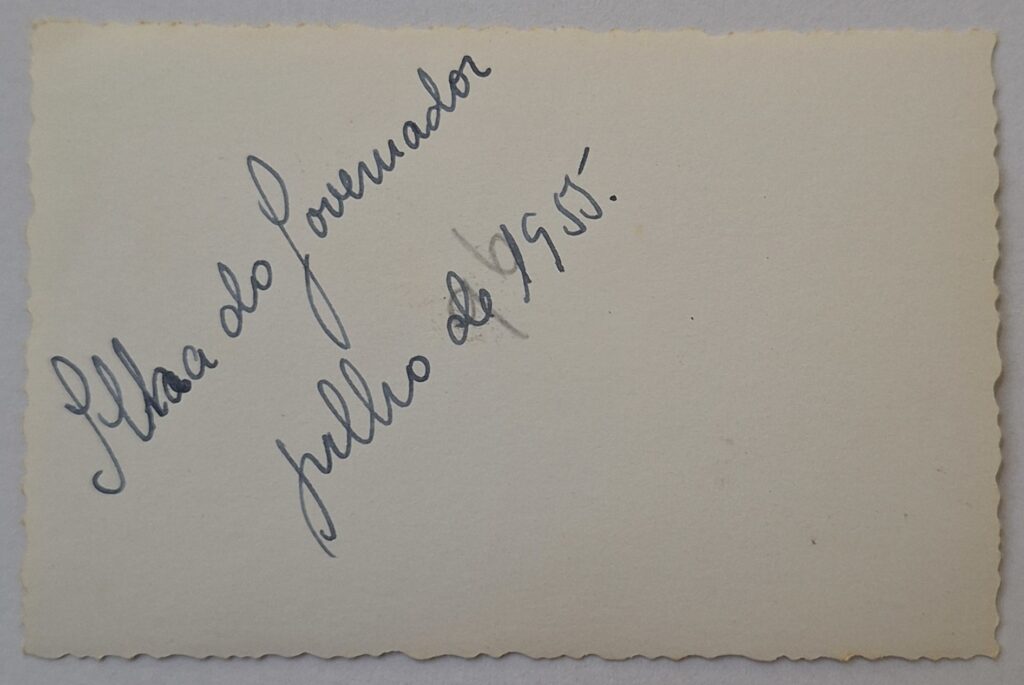 Ilha do Governador
julho de 1955.
96